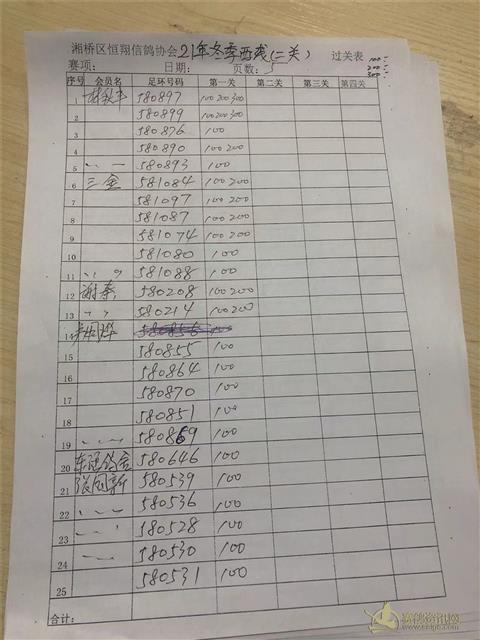 湘桥区恒翔信鸽协会21年冬季西线(二关) 过关表 100
赛项: 日期: 页数: 5 200
300
序号 会员名 足环号码 第一关 第二关 第三关 第四关
1 580897 100 200 300
2 580899 100 200 300
3 580876 100
4 580890 100 200
5 580893 100
6 三金 581084 100 200
7 581097 100 200
8 581087 100 200
9 581074 100 200
10 581080 100
11 581088 100
12 谢泰 580208 100 200
13 580214 100 200
14 580856 100
15 580855 100
16 580864 100
17 580870 100
18 580851 100
19 580869 100
20 580646 100
21 580539 100
22 580536 100
23 580528 100
24 580530 100
25 580531 100
合计:
赛鸽资讯网